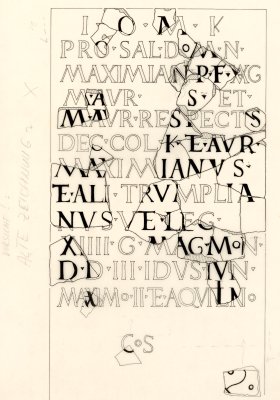 I · O · M · K
PRO · SAL · D · O · M · N ·
MAXIMIANI · P · F · AVG
M · AVR · S · ET
M · AVR · RESPECTVS
DEC · COL · K · E · AVR ·
MAXIMIANVS ·
E · ALI · TRVMPLIA
NVS · VE · LEG ·
XIIII · G · M · A · G · MON
D · D · III · IDVS · IVN
MAXIM · O · II · E · AQVILIN ·
COS
ALTE ZEICHNUNG